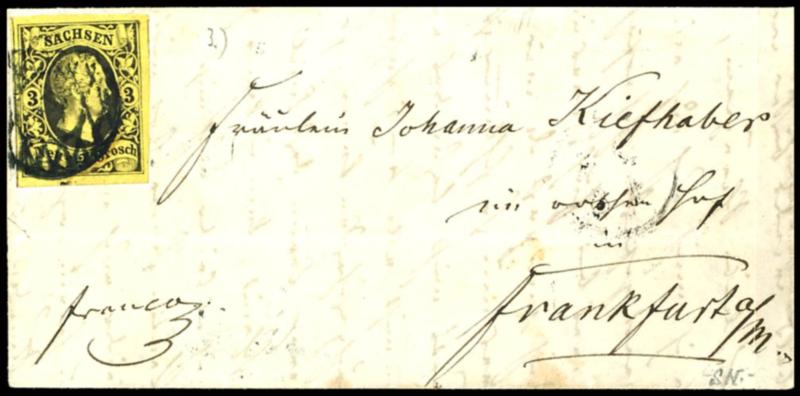 SACHSEN
3 3
3.)
Fräulein Johanna Kiefhaber
im Hof
in
Frankfurt a/M.
franco
-SN.-